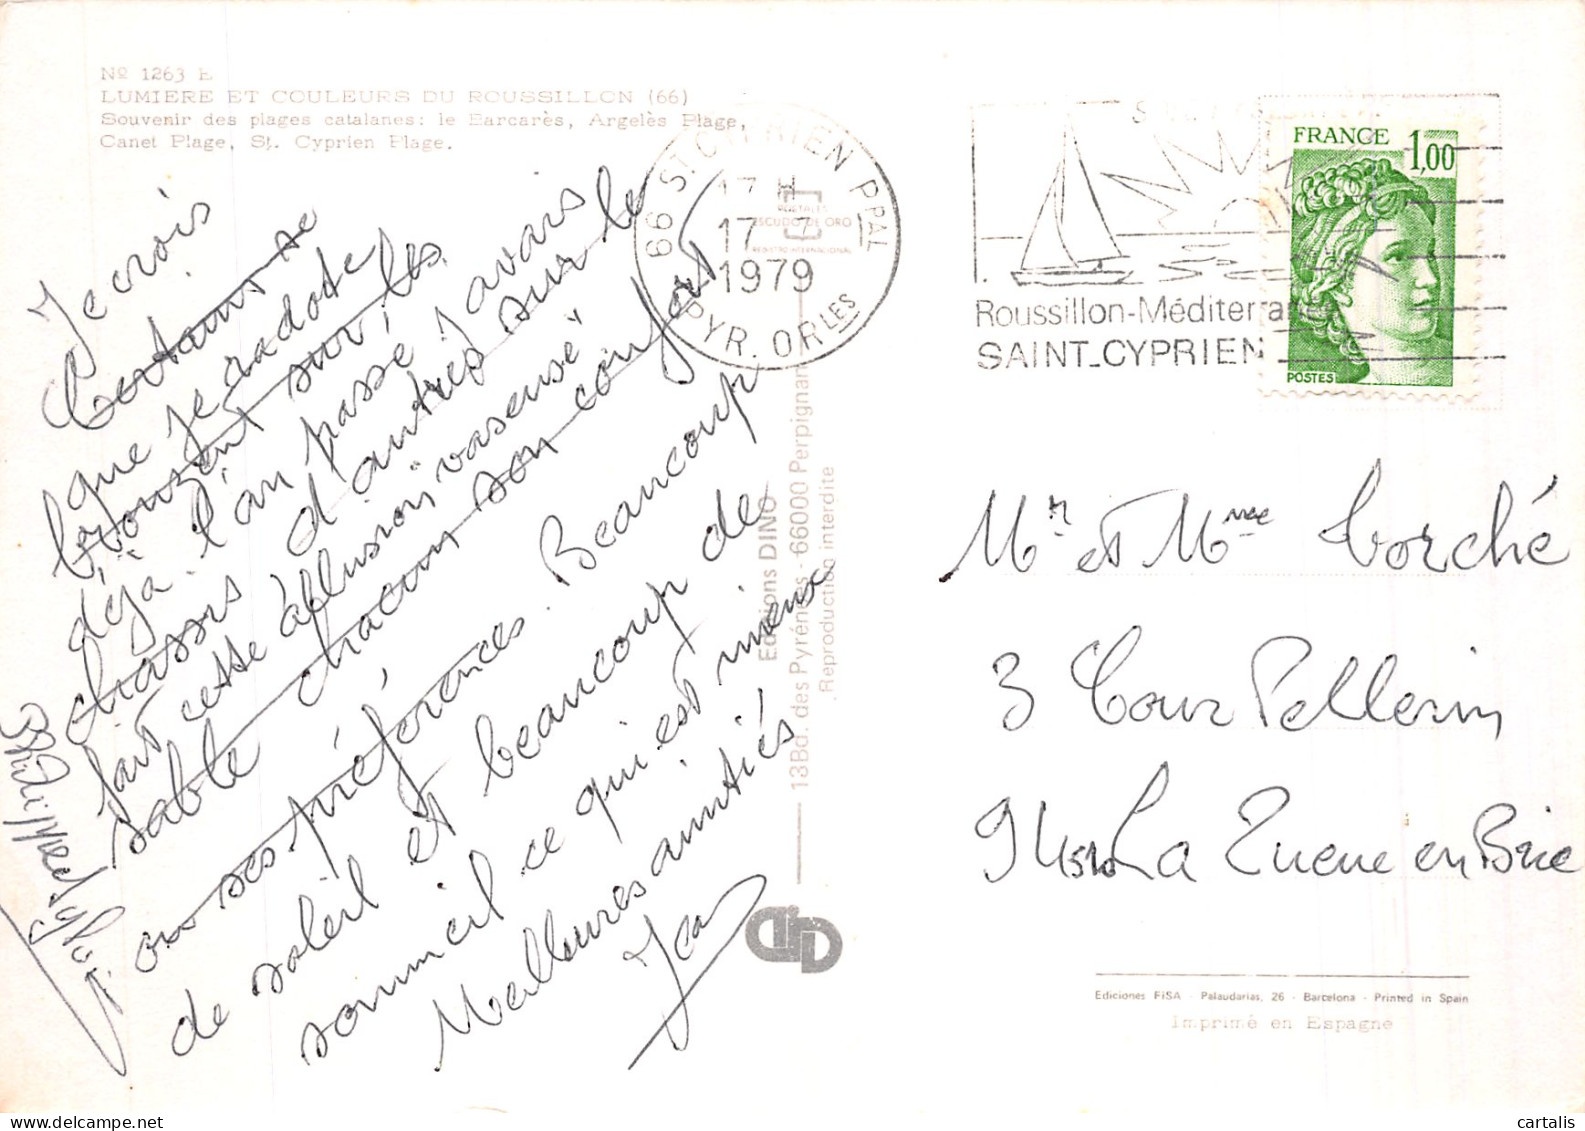 Nº 1263 E
LUMIERE ET COULEURS DU ROUSSILLON (66)
Souvenir des plages catalanes: le Barcarès, Argelès Plage,
Canet Plage, St. Cyprien Plage.
Je crois
Certains se
que je radote
bronzent sur les
déjà. l'an passé j'avais
chassis d'autres sur le
fait cette allusion "vaseuse"
sable chacun son confort
ou ses préférences. Beaucoup
de soleil et beaucoup de
sommeil ce qui est mieux
Meilleures amitiés
Jean
66 ST CYPRIEN PPAL
17 H
17 - 7
1979
PYR. ORLES
ESCUDO DE ORO
Roussillon-Méditerranée
SAINT-CYPRIEN
FRANCE 1,00
POSTES
Editions DINO
13Bd. des Pyrénées - 66000 Perpignan
Reproduction interdite
Mr et Mme
3 Cour Pellerin
94510 La Queue en Brie
Ediciones FISA - Palaudarias, 26 - Barcelona - Printed in Spain
Imprimé en Espagne
cartalis